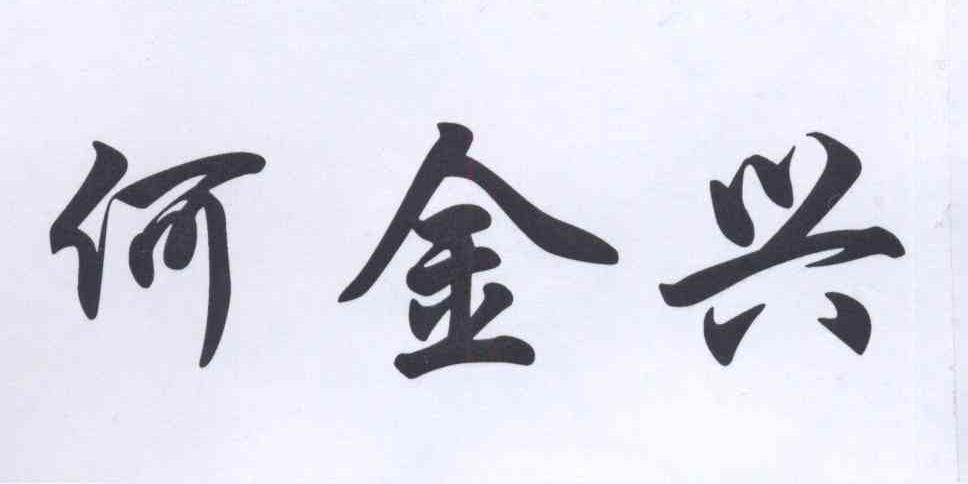 何金兴